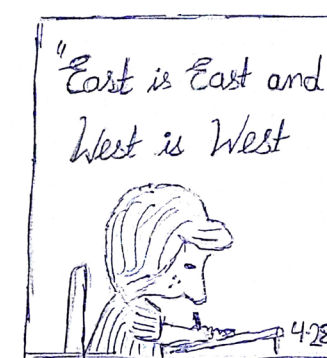 "East is East and
West is West
4-28